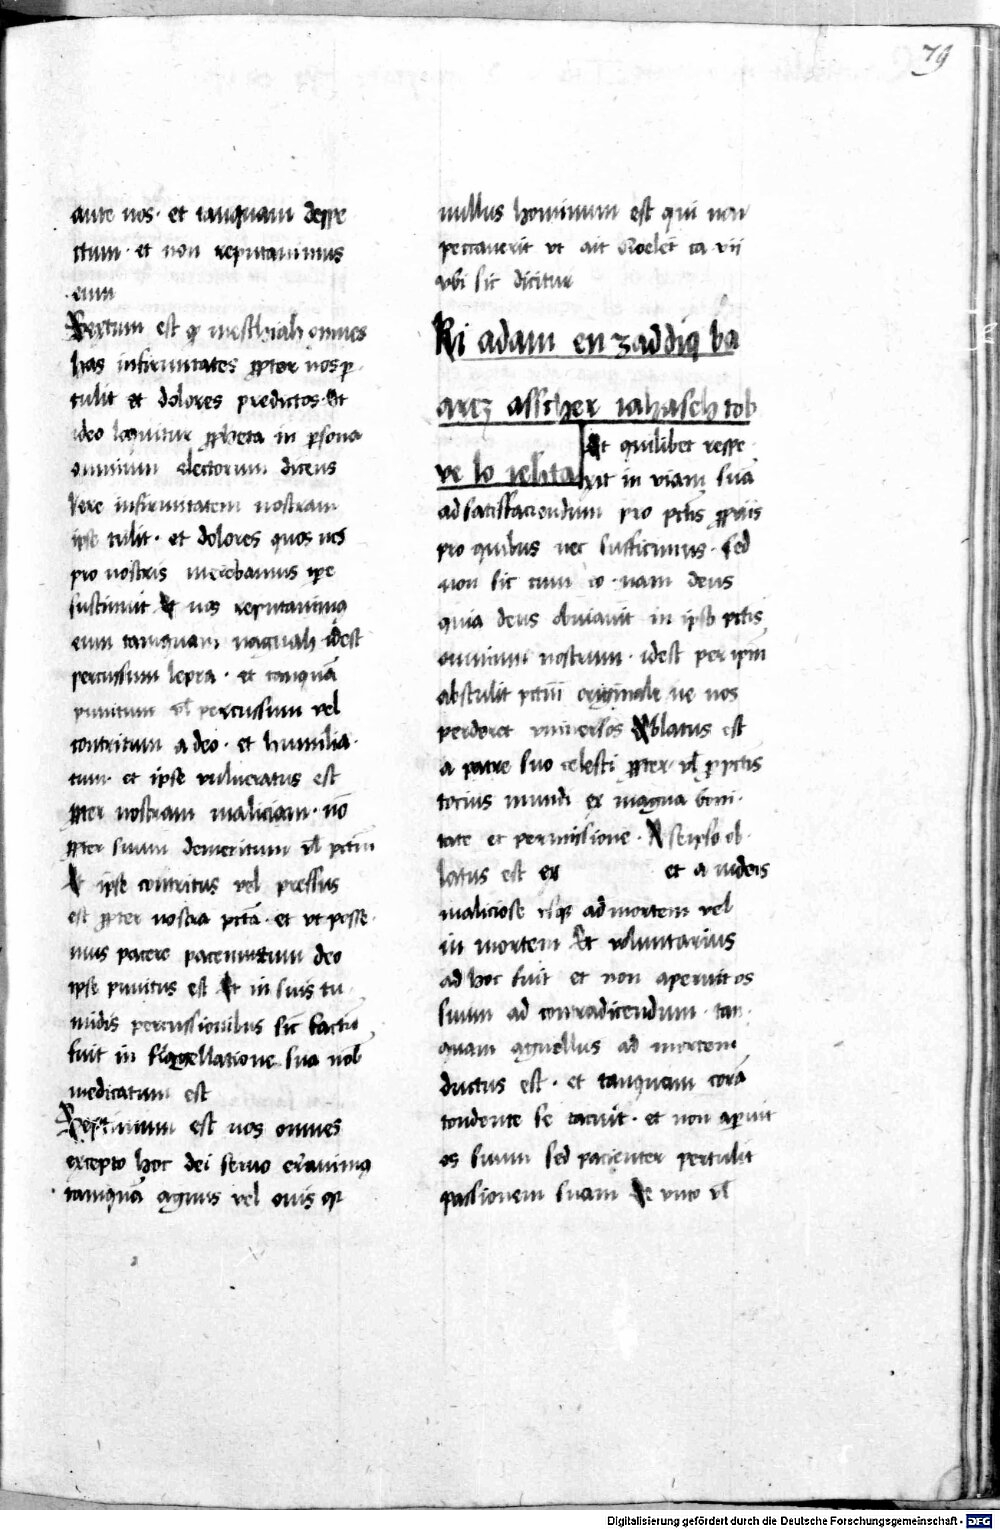 79
ante nos · et tanquam despe
ctum · et non reputauimus
eum
Sextum est qꝫ meschiah omnes
has infirmitates ꝓpter nos ꝑ
tulit et dolores predictos · Et
ideo loquitur ꝓpheta in ꝑsona
omnium electorum dicens
Vere infirmitatem nostram
ipse tulit · et dolores quos nos
pro nostris merebamus ipse
sustinuit Et nos reputauimꝰ
eum tamquam naguah idest
percussum lepra · et tanquã
punitum vl percussum vel
contritum a deo · et humilia
tum · et ipse vulneratus est
ꝓpter nostram maliciam · nõ
ꝓpter suum demeritum vl pctm̃
Et ipse contritus vel pressus
est ꝓpter nostra pctã · et vt posse
mus pacere pacem cum deo
ipse punitus est Et in suis tu
midis percussionibus sic factũ
fuit in flagellatione sua nob̃
medicatum est
Septimum est nos omnes
excepto hoc dei seruo erauimꝰ
tamquã agnus vel ouis qꝫ
nullus hominum est qui non
peccauerit vt ait Koelet̃ ca vii
vbi sic dicitur
Ki adam en zaddiq ba
arez asscher iahasch tob
ve lo iehta Et quilibet respe
xit in viam suã
ad satisfaciendum pro pctis ꝓpriis
pro quibus nec sufficimus · sed
non sic cum eo · nam deus
quia deus obuiauit in ipso pctis
omnium nostrum · idest per ipm̃
abstulit pctm̃ originale ne nos
perderet vniuersos Oblatus est
a patre suo celesti ꝓpter · vl ꝓ pctis
tocius mundi ex magna boni
tate et permisione · A seipso ob
latus est ex et a iudeis
maliciose vsqꝫ ad mortem vel
in mortem Et voluntarius
ad hoc fuit et non aperuit os
suum ad contradicendum · tan
quam agnellus ad mortem
ductus est · et tanquam corã
tondente se tacuit · et non aꝑuit
os suum sed pacienter pertulit
passionem suam De vnco vl
Digitalisierung gefördert durch die Deutsche Forschungsgemeinschaft · DFG